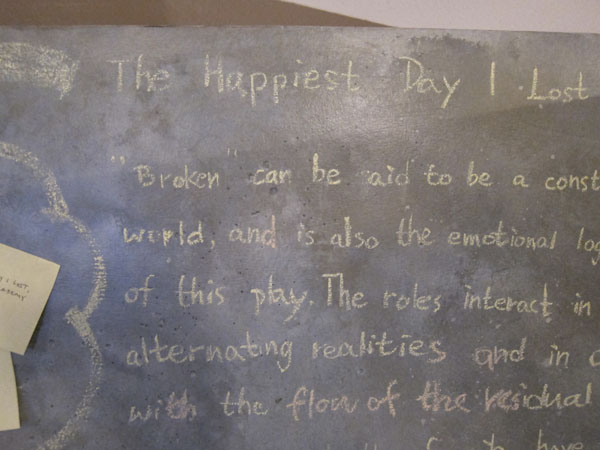 The Happiest Day I Lost
"Broken" can be aid to be a const
world, and is also the emotional log
of this play. The roles interact in
alternating realities and in a
with the flow of the residual
to have
I LOST,